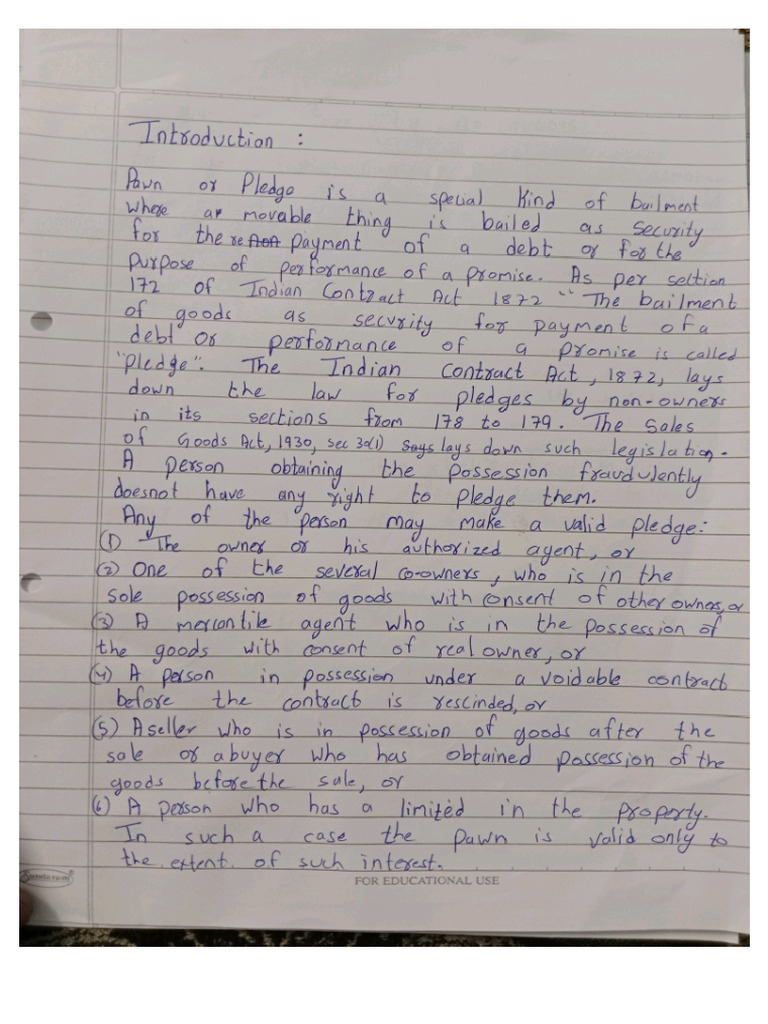 Introduction :
Pawn or Pledge is a special kind of bailment
where a movable thing is bailed as security
for the re payment of a debt or for the
purpose of performance of a promise. As per seltion
172 of Indian Contract Act 1872 "The bailment
of goods as security for payment of a
debt or performance of a promise is called
"pledge". The Indian Contract Act, 1872, lays
down the law for pledges by non-owners
in its sections from 178 to 179. The Sales
of Goods Act, 1930, sec 30(1) lays down such legislation.
A person obtaining the possession fraudulently
doesnot have any right to pledge them.
Any of the person may make a valid pledge:
(1) The owner or his authorized agent, or
(2) One of the several co-owners, who is in the
sole possession of goods with consent of other owners, or
(3) A mercantile agent who is in the possession of
the goods with consent of real owner, or
(4) A person in possession under a voidable contract
before the contract is rescinded, or
(5) A seller who is in possession of goods after the
sale or a buyer who has obtained possession of the
goods before the sale, or
(6) A person who has a limited in the property.
In such a case the pawn is valid only to
the extent of such interest.
Sundaram FOR EDUCATIONAL USE